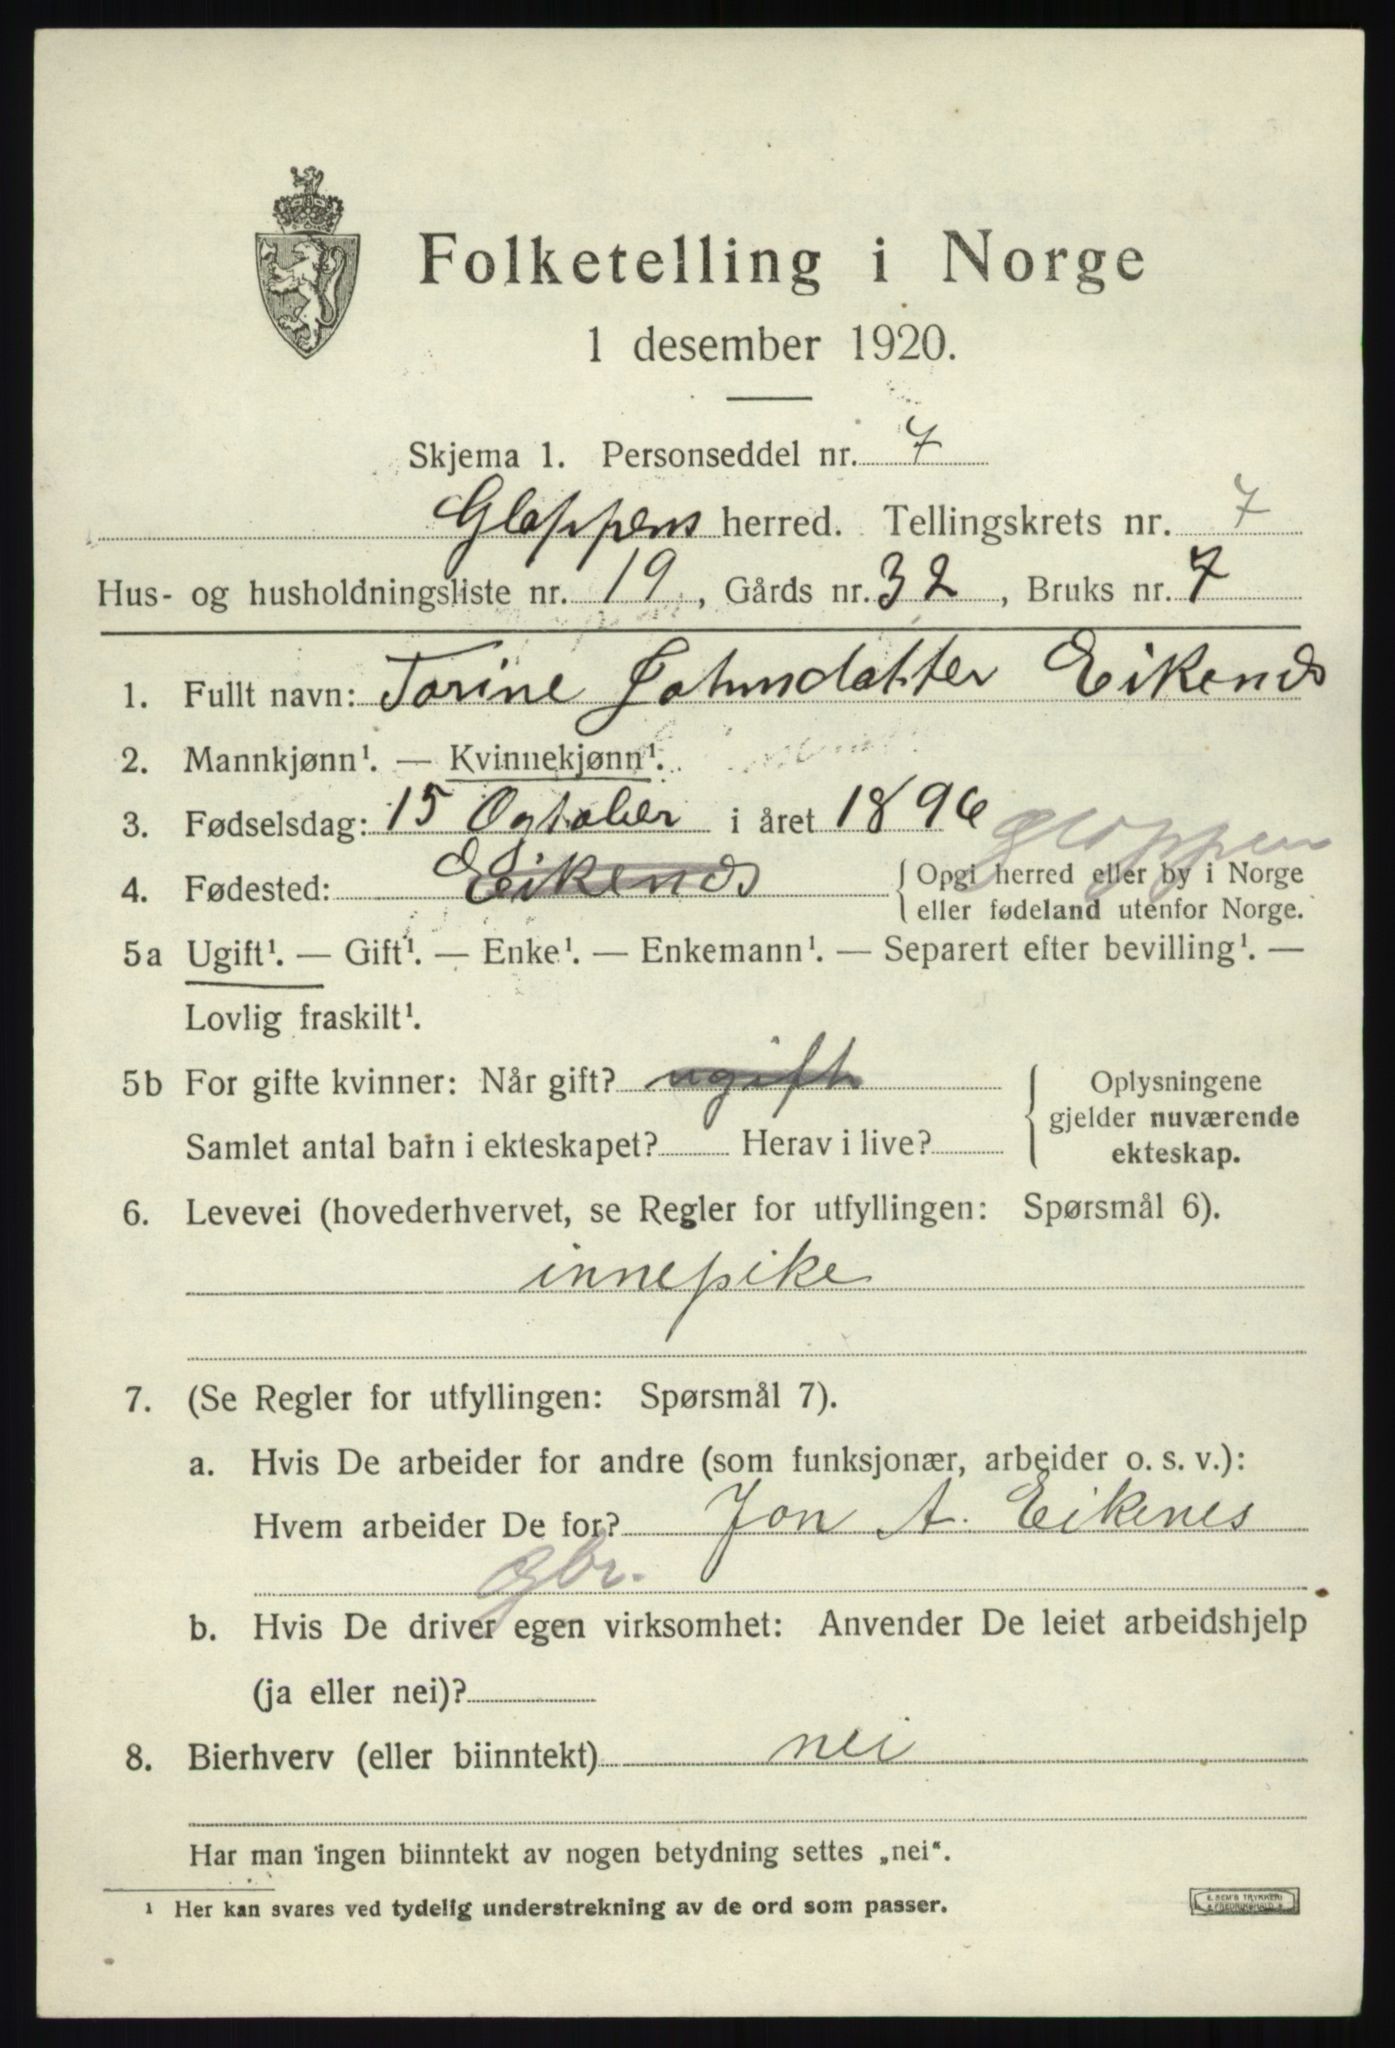 Folketelling i Norge
1 desember 1920.
Skjema 1. Personseddel nr. 7
Gloppens herred. Tellingskrets nr. 7
Hus- og husholdningsliste nr. 19, Gårds nr. 32, Bruks nr. 7
1. Fullt navn: Torine Johnsdatter Eikenes
2. Mannkjønn¹. — Kvinnekjønn¹.
3. Fødselsdag: 15 Ogtober i året 1896
Gloppen
4. Fødested: Eikenes { Opgi herred eller by i Norge
eller fødeland utenfor Norge.
5a Ugift¹. — Gift¹. — Enke¹. — Enkemann¹. — Separert efter bevilling¹. —
Lovlig fraskilt¹.
5b For gifte kvinner: Når gift? ugift { Oplysningene
gjelder nuværende
Samlet antal barn i ekteskapet? Herav i live?
ekteskap.
6. Levevei (hovederhvervet, se Regler for utfyllingen: Spørsmål 6).
innepike
7. (Se Regler for utfyllingen: Spørsmål 7).
a. Hvis De arbeider for andre (som funksjonær, arbeider o. s. v.):
Hvem arbeider De for? Jon A. Eikenes
Gbr.
b. Hvis De driver egen virksomhet: Anvender De leiet arbeidshjelp
(ja eller nei)?
8. Bierhverv (eller biinntekt) nei
Har man ingen biinntekt av nogen betydning settes „nei“.
¹ Her kan svares ved tydelig understrekning av de ord som passer.
E. SEM'S TRYKKERI
FREDRIKSHALD